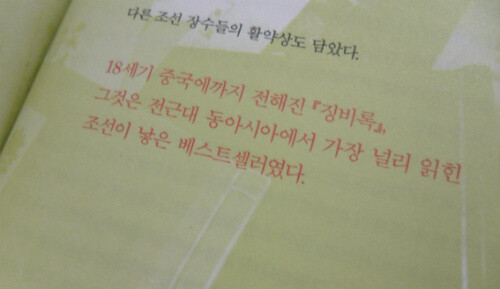 다른 조선 장수들의 활약상도 담았다.
18세기 중국에까지 전해진 『징비록』,
그것은 전근대 동아시아에서 가장 널리 읽힌
조선이 낳은 베스트셀러였다.